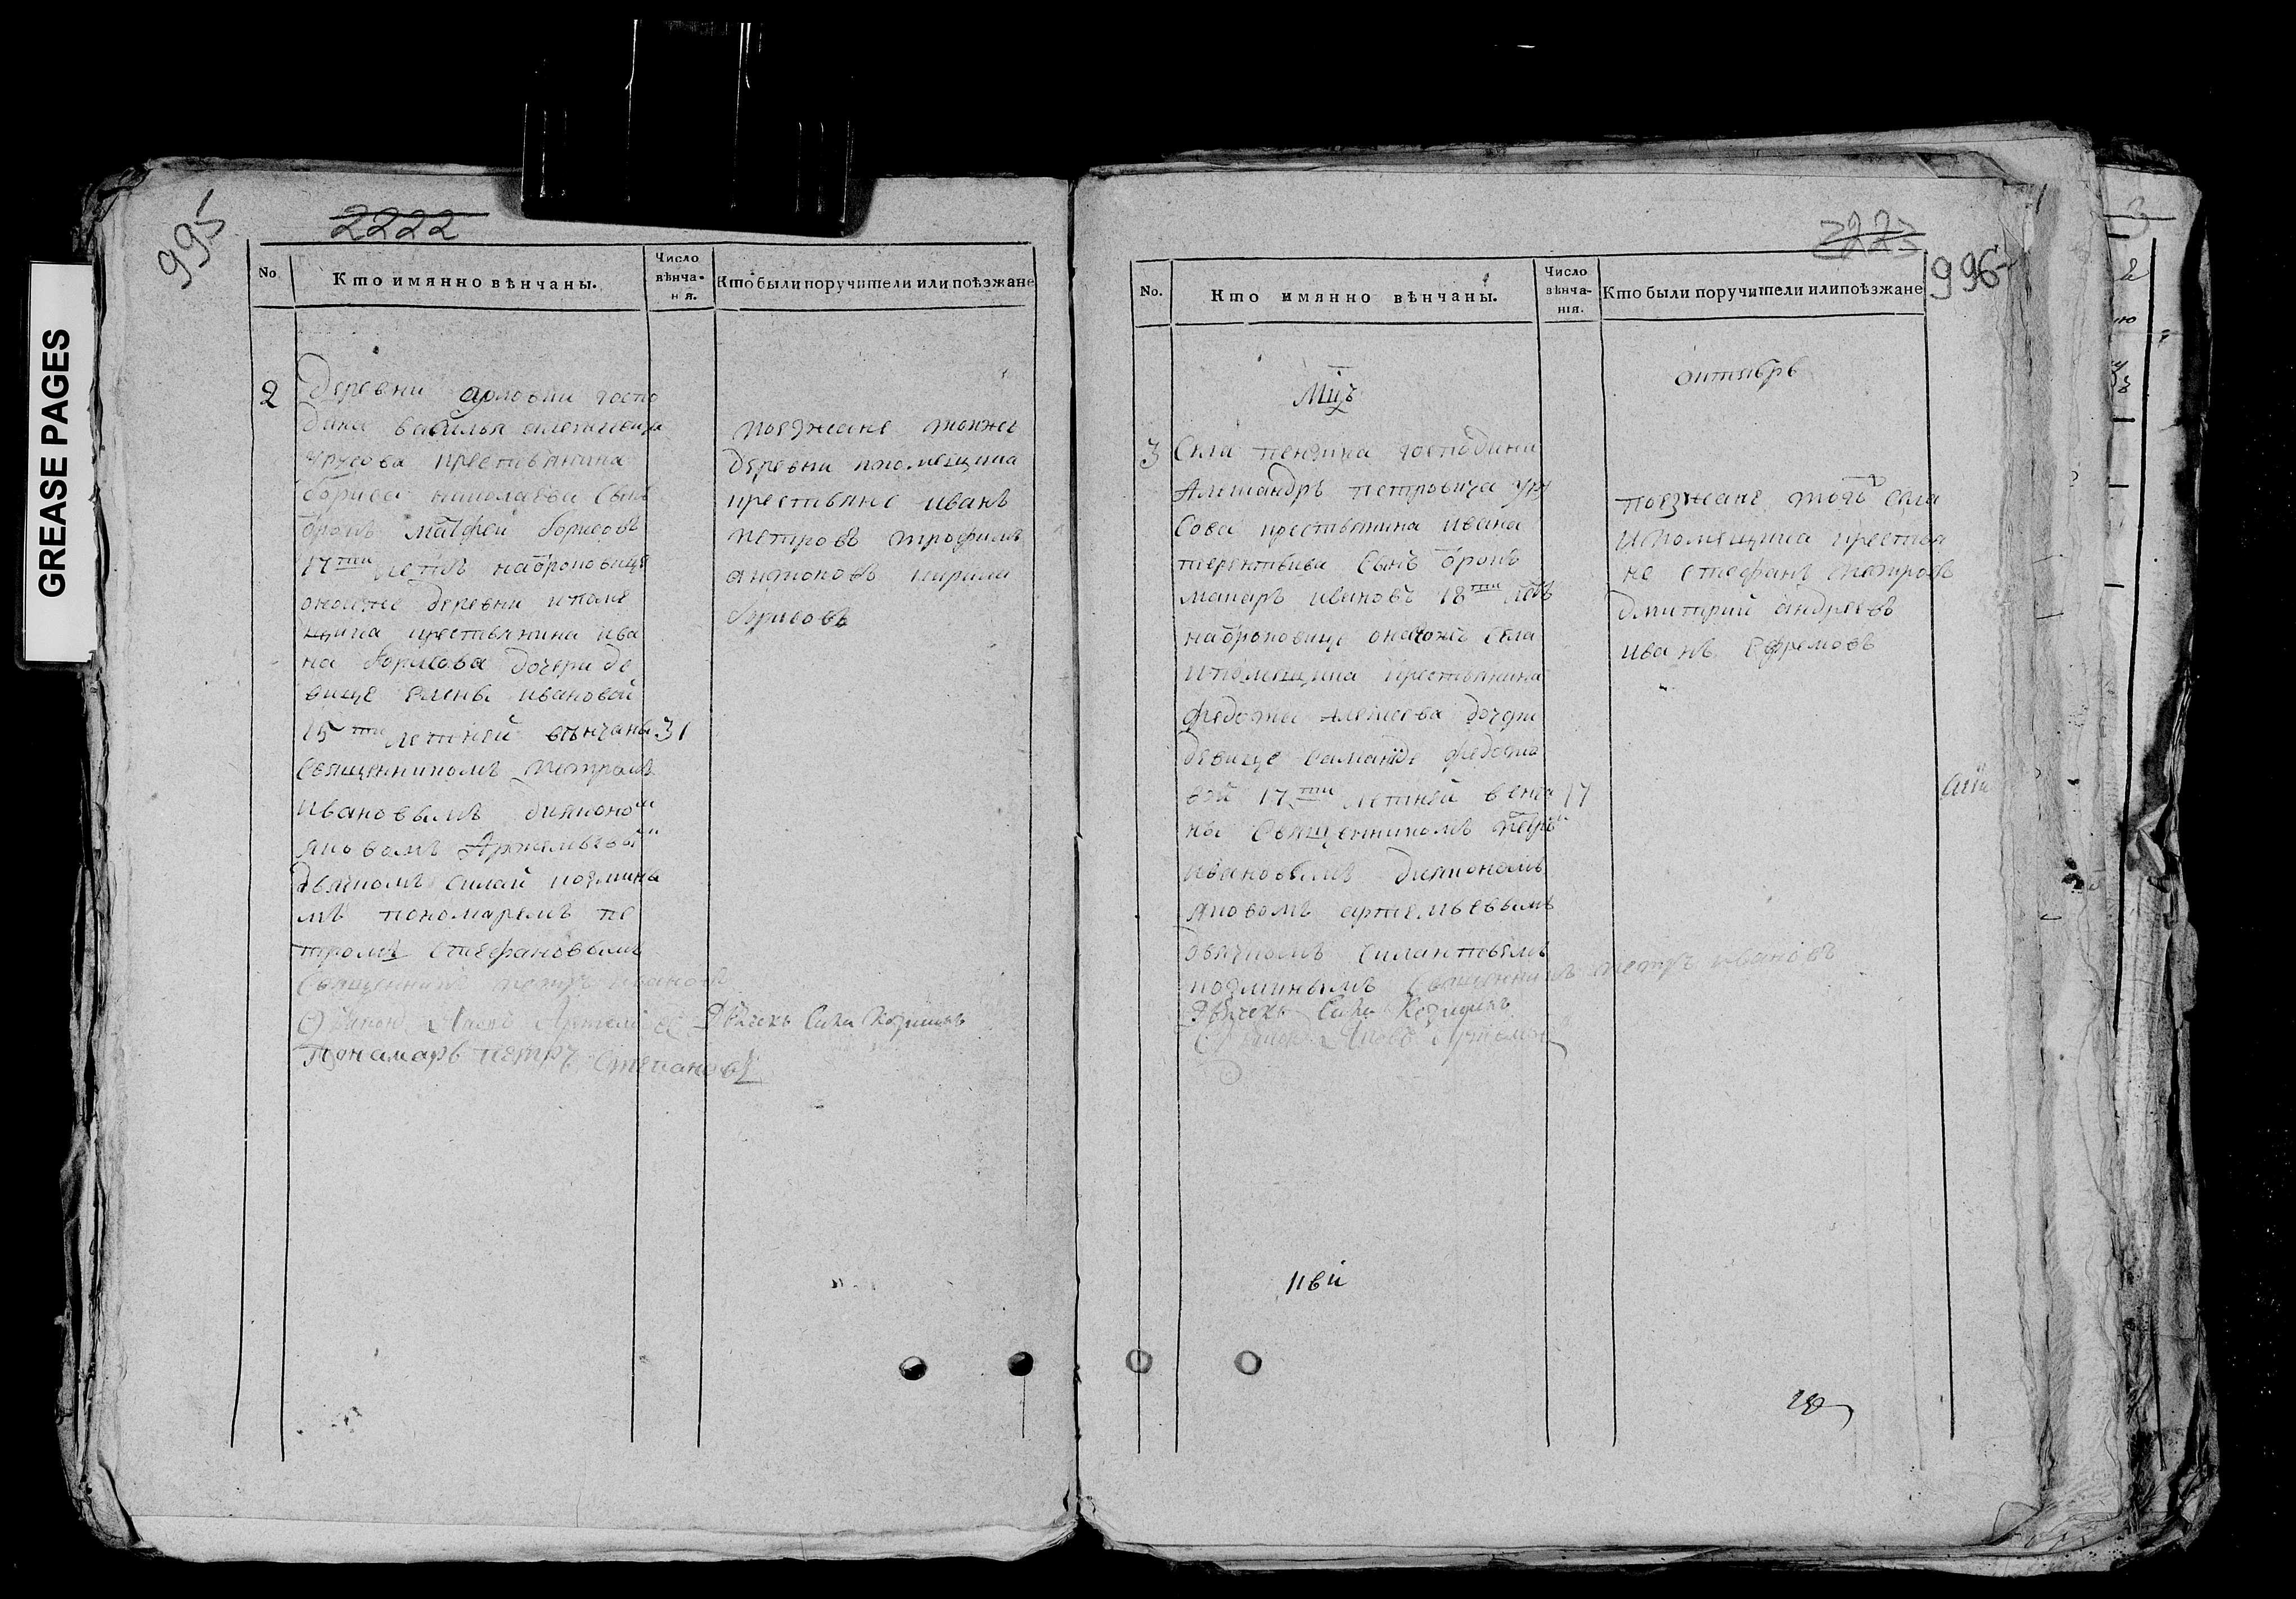 GREASE PAGES
995
2222
No
Кто имянно вѣнчаны.
Число вѣнча-ня.
Кто были поручители или поѣзжане
2
Деревни госпо
дина василья алексиевича
урусова крестьянина
бориса николаева сынъ
отрокъ матфей борисовъ
17ти летъ набраковице
оноиже деревни ипоме
щика крестьянина ива
на борисова дочери де
вице елены ивановой
15ти летней венчаны 31
священникомъ петромъ
ивановымъ дияконом
яковомъ Артемьевым
дьячкомъ силай козмины
мъ пономаремъ пе
тромъ стефановымъ
священникъ петръ иванов
Диакон Яковъ Артемьев
Дьячекъ Сила Козминъ
Понамарь петръ степановъ
поезжане тоиже
деревни ипомещика
крестьяне иванъ
петровъ трофимъ
антоновъ кирила
борисовъ
2223
996
No.
Кто имянно вѣнчаны.
Число вѣнча-нія.
Кто были поручители или поѣзжане
Мцъ
октябрь
3
Села господина
Александръ петровича уру
сова крестьянина ивана
терентьева сынъ отрокъ
макаръ ивановъ 18ти летъ
набраковице оногожъ села
ипомещика крестьянина
федота алексеева дочери
девице федото
вой 17ти летней венча 17
ны священникомъ петром
ивановымъ дияконамъ
яковомъ артемьевымъ
дьячкомъ силантьевымъ
козминымъ священникъ петръ ивановъ
Дьячекъ Сила Козминъ
Диакон Яковъ Артемьев
поезжане тогъ села
ипомещика крестья
не стефанъ петровъ
дмитрий андреевъ
иванъ ефремовъ